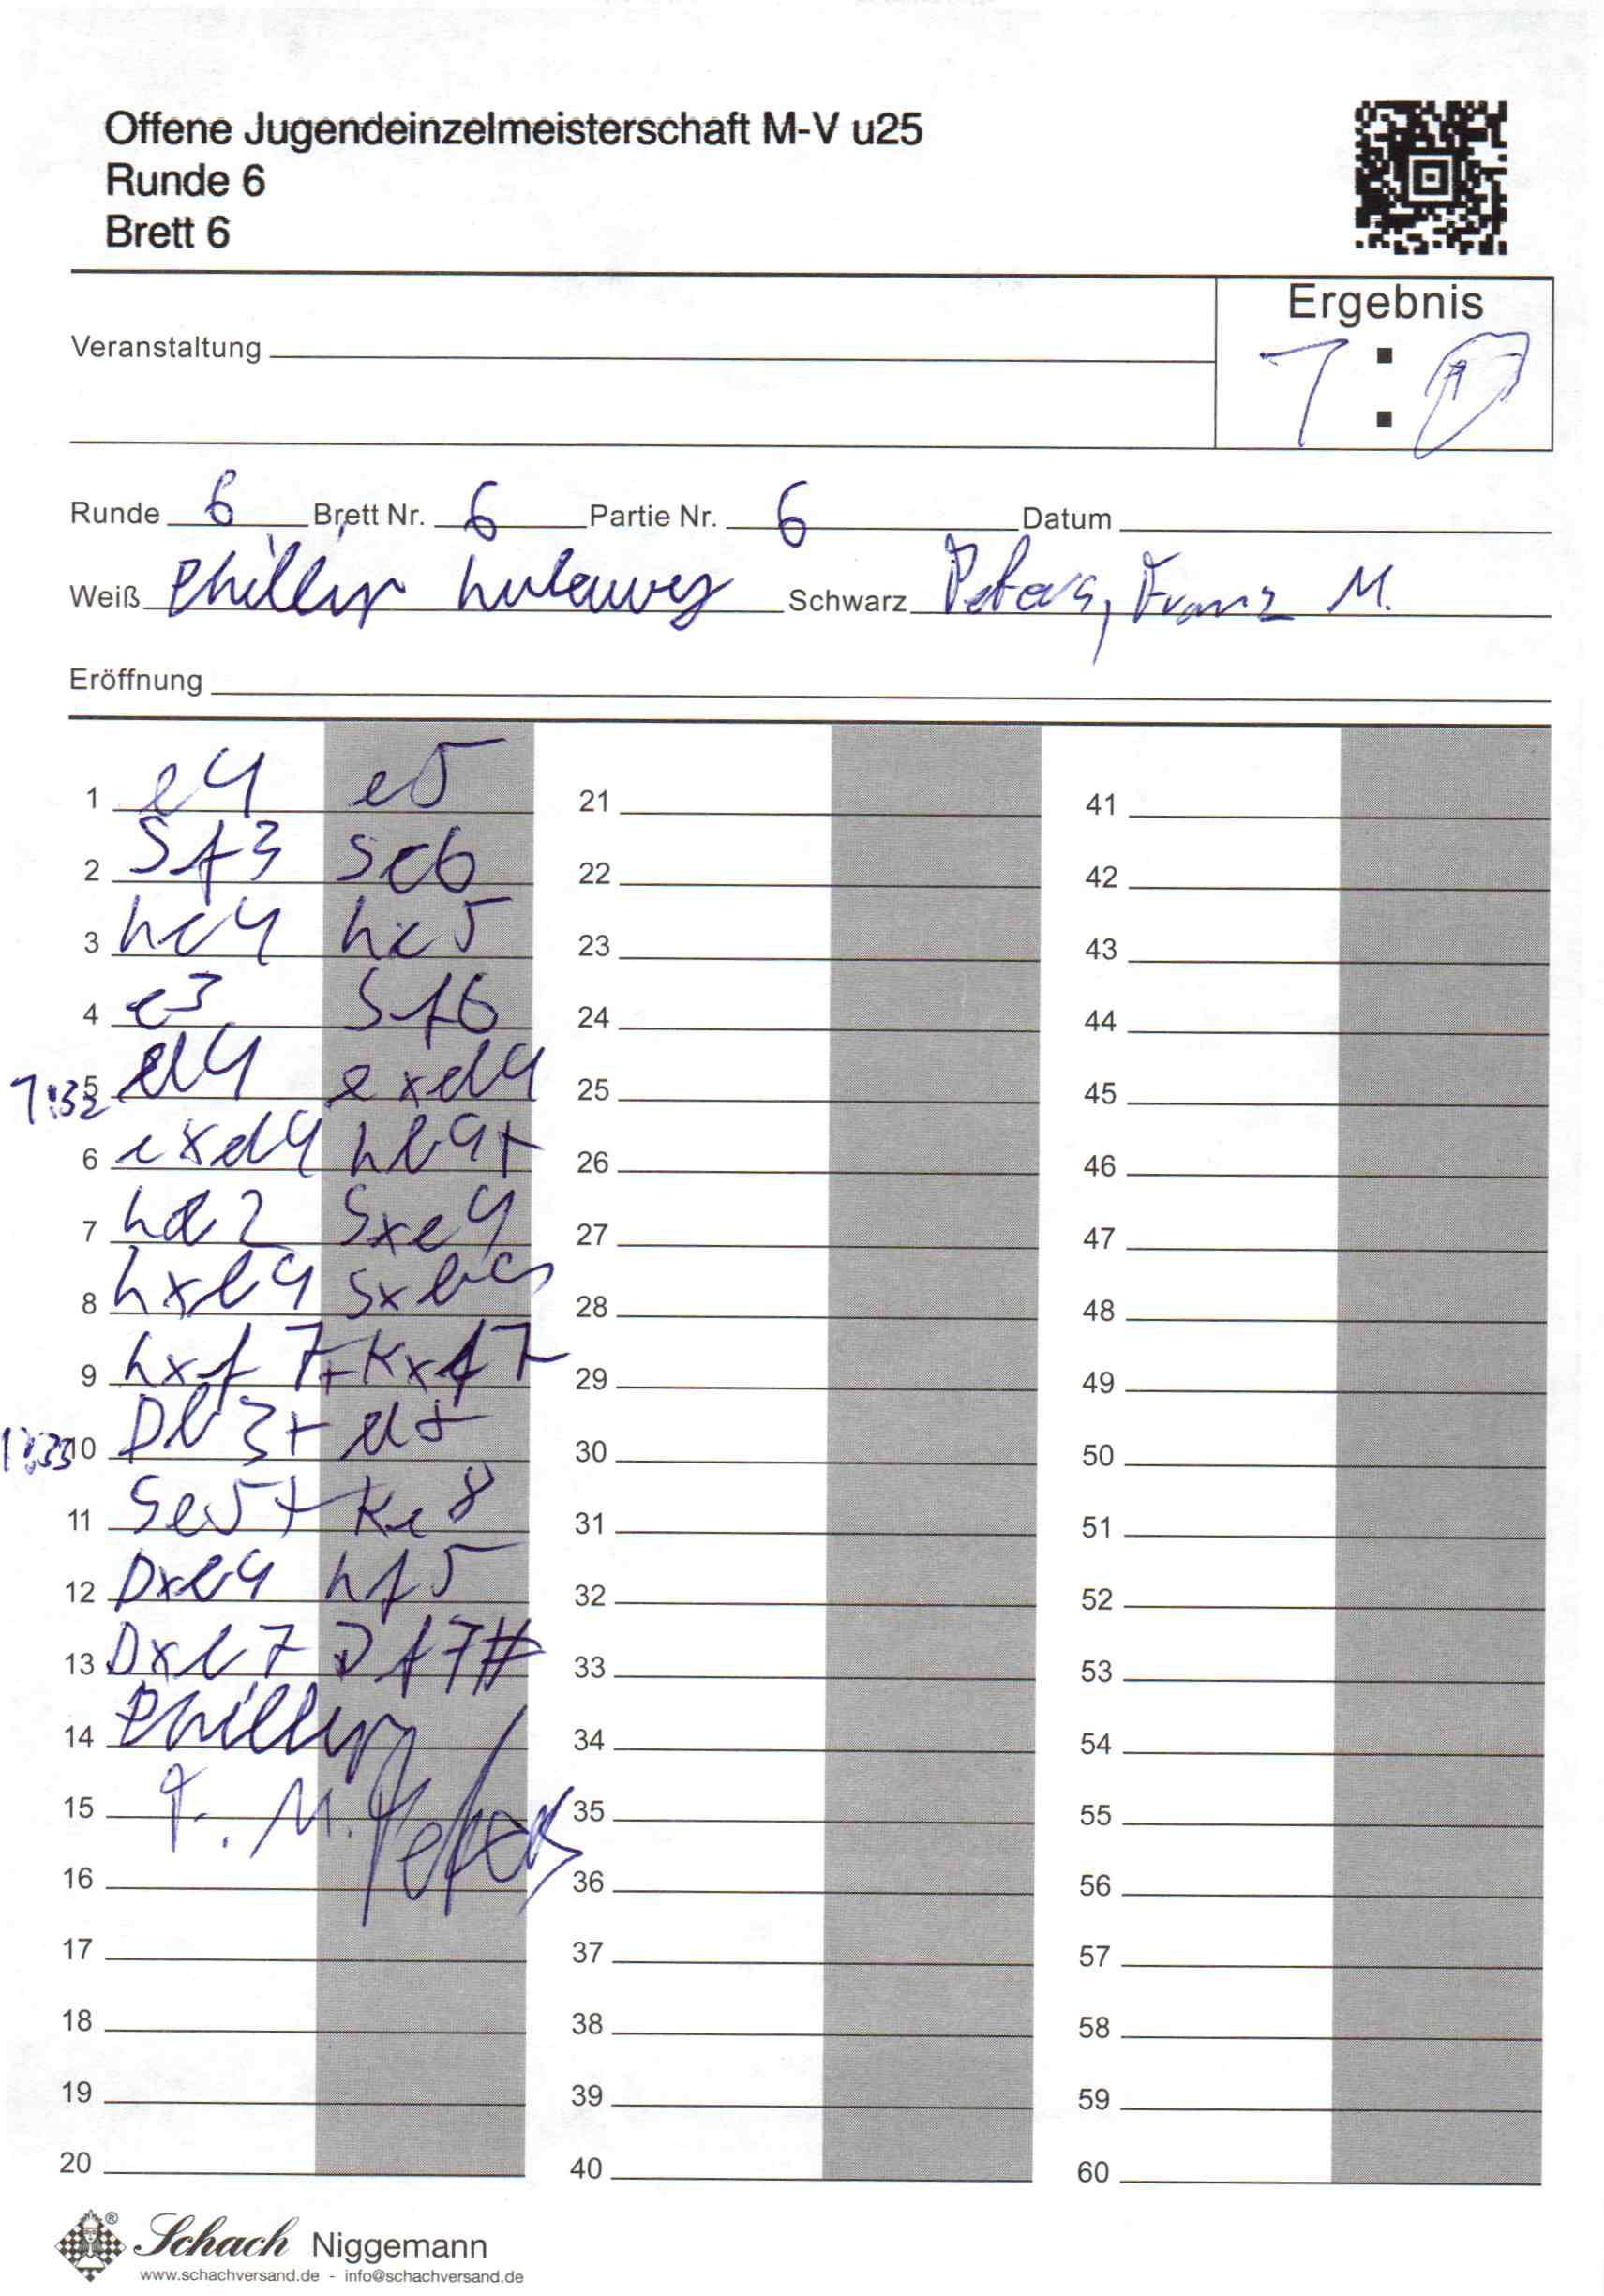 Offene Jugendeinzelmeisterschaft M-V u25
Runde 6
Brett 6
Ergebnis
Veranstaltung
1 : 0
Runde 6 Brett Nr. 6 Partie Nr. 6 Datum
Weiß Phillip Schwarz Peters, Franz M.
Eröffnung
1 e4 e5 21 41
2 Sf3 Sc6 22 42
3 Lc4 Lc5 23 43
4 c3 Sf6 24 44
7:32 5 d4 exd4 25 45
6 cxd4 Lb4+ 26 46
7 Ld2 Sxe4 27 47
8 Lxb4 Sxb4 28 48
9 Lxf7+ Kxf7 29 49
10 Db3+ d5 30 50
11 Se5+ Ke8 31 51
12 Dxb4 Lf5 32 52
13 Dxb7 Df7# 33 53
14 Phillip 34 54
15 F. M. Peters 35 55
16 36 56
17 37 57
18 38 58
19 39 59
20 40 60
Schach Niggemann
www.schachversand.de - info@schachversand.de